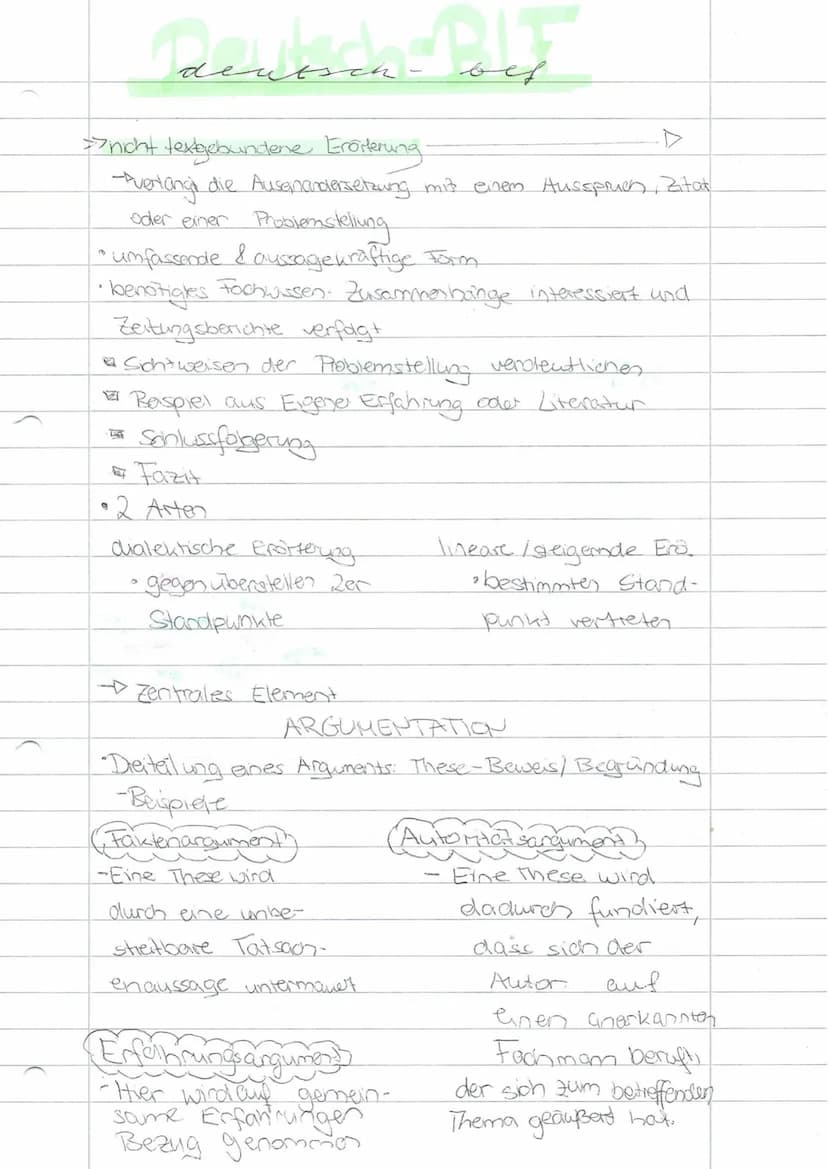 Deutsch-BLF
deutsch - blf
nicht textgebundene Erörterung
verlangt die Auseinandersetzung mit einem Ausspruch, Zitat
oder einer Problemstellung
• umfassende & aussagekräftige Form
• benötigtes Fachwissen. Zusammenhänge interessiert und
Zeitungsberichte verfolgt
Sichtweisen der Problemstellung verdeutlichen
Beispiel aus Eigener Erfahrung oder Literatur
Schlussfolgerung
Fazit
• 2 Arten
dialektische Erörterung
• gegenüberstellen 2er
Standpunkte
lineare / steigernde Erö.
• bestimmten Stand-
punkt vertreten
→ Zentrales Element
ARGUMENTATION
• Dreiteilung eines Arguments: These-Beweis/Begründung
-Beispiele
Faktenargument
-Eine These wird
durch eine unbe-
streitbare Tatsach-
enaussage untermauert
Autoritätsargument
- Eine These wird
dadurch fundiert,
dass sich der
Autor auf
einen anerkannten
Fachmann beruft,
der sich zum betreffenden
Thema geäußert hat.
Erfahrungsargument
-Hier wird auf gemein-
same Erfahrungen
Bezug genommen